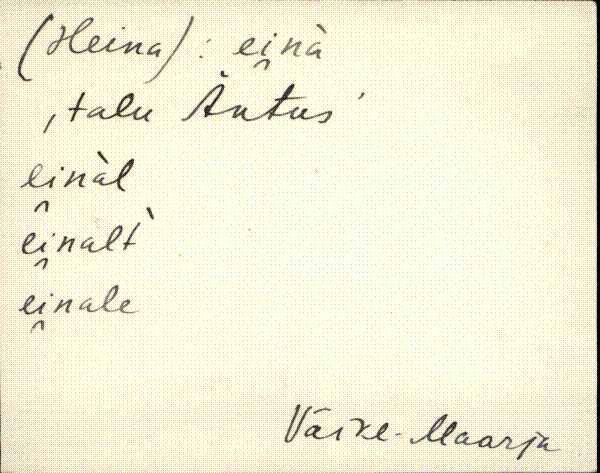 (Heina): ei̯nà
‚talu Äntus’
ei̯nàl
ei̯nalt̀
ei̯nale
Väike-Maarja